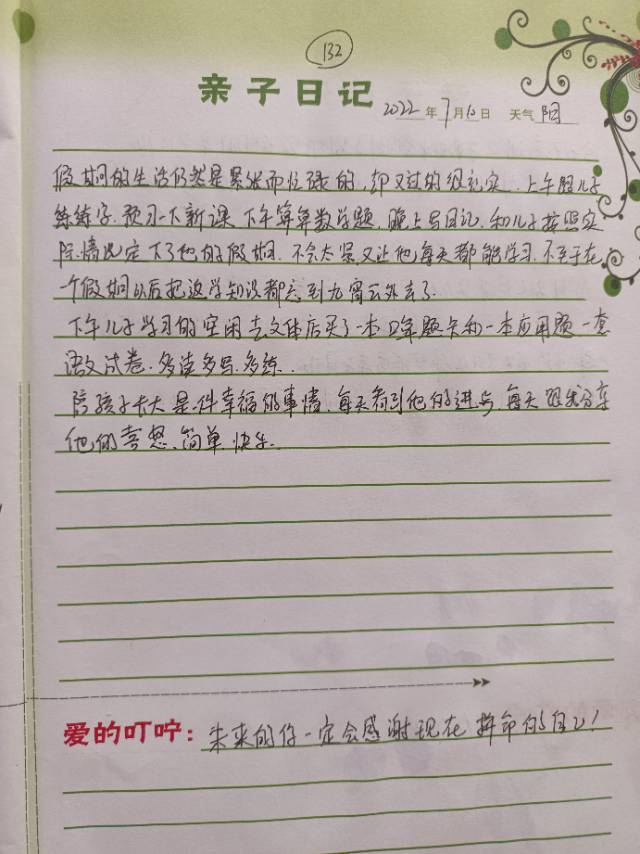 132
亲子日记 2022年7月10日 天气 阳
假期的生活仍然是紧张而忙碌的,却又过的很充实。上午跟儿子
练练字,预习一下新课,下午算算数学题,晚上写日记,和儿子按照实
际情况定下了他的假期,不会太累又让他每天都能学习,不至于在
个假期以后把这学知识都忘到九霄云外去了。
下午儿子学习的空闲去文体店买了一本口算题卡和一本应用题一套
语文试卷,多读多写,多练。
陪孩子长大是一件幸福的事情,每天看到他的进步,每天跟我分享
他的喜怒,简单,快乐。
爱的叮咛:未来的你一定会感谢现在拼命的自己!